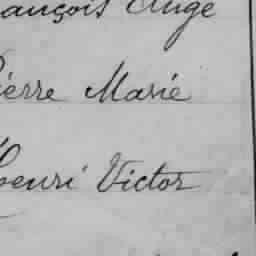 ançois Ange
ierre Marie
Henri Victor